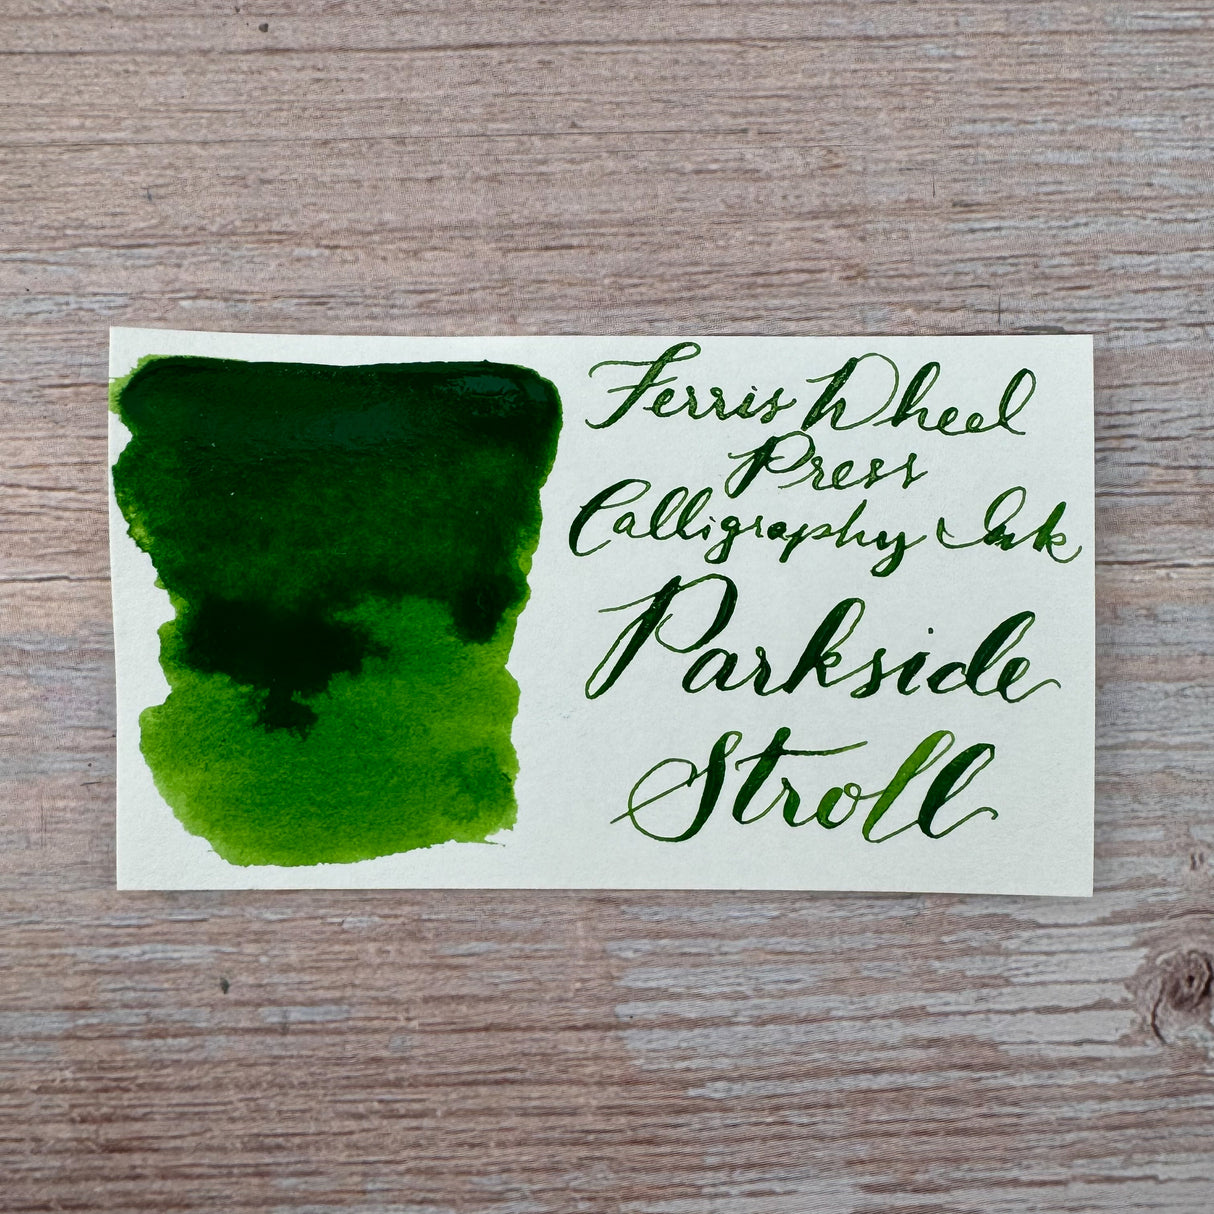 Ferris Wheel
Press
Calligraphy Ink
Parkside
Stroll